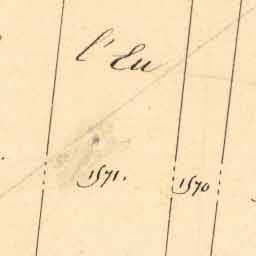 l'Eu
1571.
1570